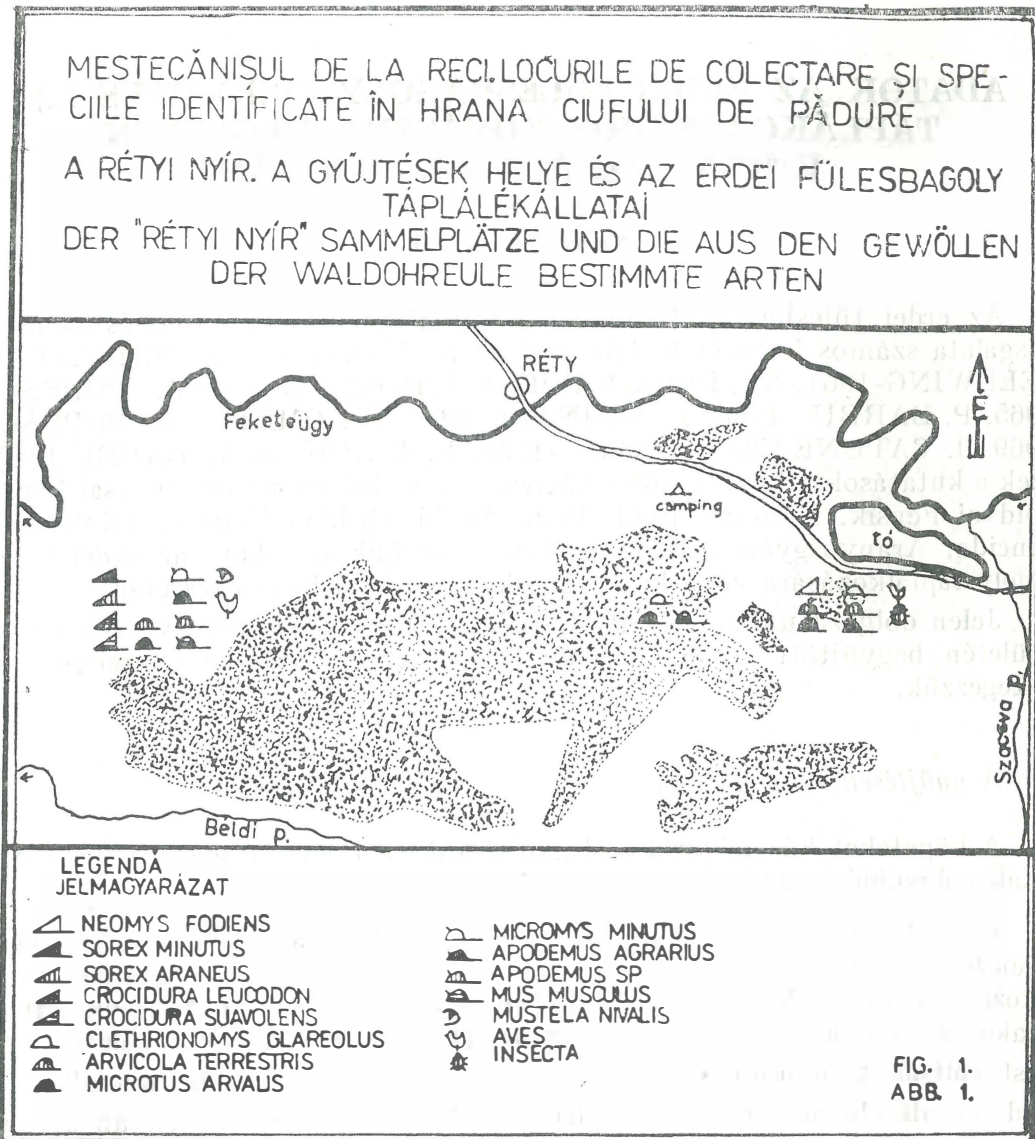 MESTECĂNISUL DE LA RECI.LOCURILE DE COLECTARE ȘI SPE-
CIILE IDENTIFICATE ÎN HRANA CIUFULUI DE PĂDURE
A RÉTYI NYÍR. A GYŰJTÉSEK HELYE ÉS AZ ERDEI FÜLESBAGOLY
TÁPLÁLÉKÁLLATAI
DER "RÉTYI NYÍR" SAMMELPLÄTZE UND DIE AUS DEN GEWÖLLEN
DER WALDOHREULE BESTIMMTE ARTEN
RÉTY
Feketeügy
É
camping
tó
Szacsva p.
Béldi p.
LEGENDĂ
JELMAGYARÁZAT
NEOMYS FODIENS
SOREX MINUTUS
SOREX ARANEUS
CROCIDURA LEUCODON
CROCIDURA SUAVOLENS
CLETHRIONOMYS GLAREOLUS
ARVICOLA TERRESTRIS
MICROTUS ARVALIS
MICROMYS MINUTUS
APODEMUS AGRARIUS
APODEMUS SP
MUS MUSCULUS
MUSTELA NIVALIS
AVES
INSECTA
FIG. 1.
ABB. 1.